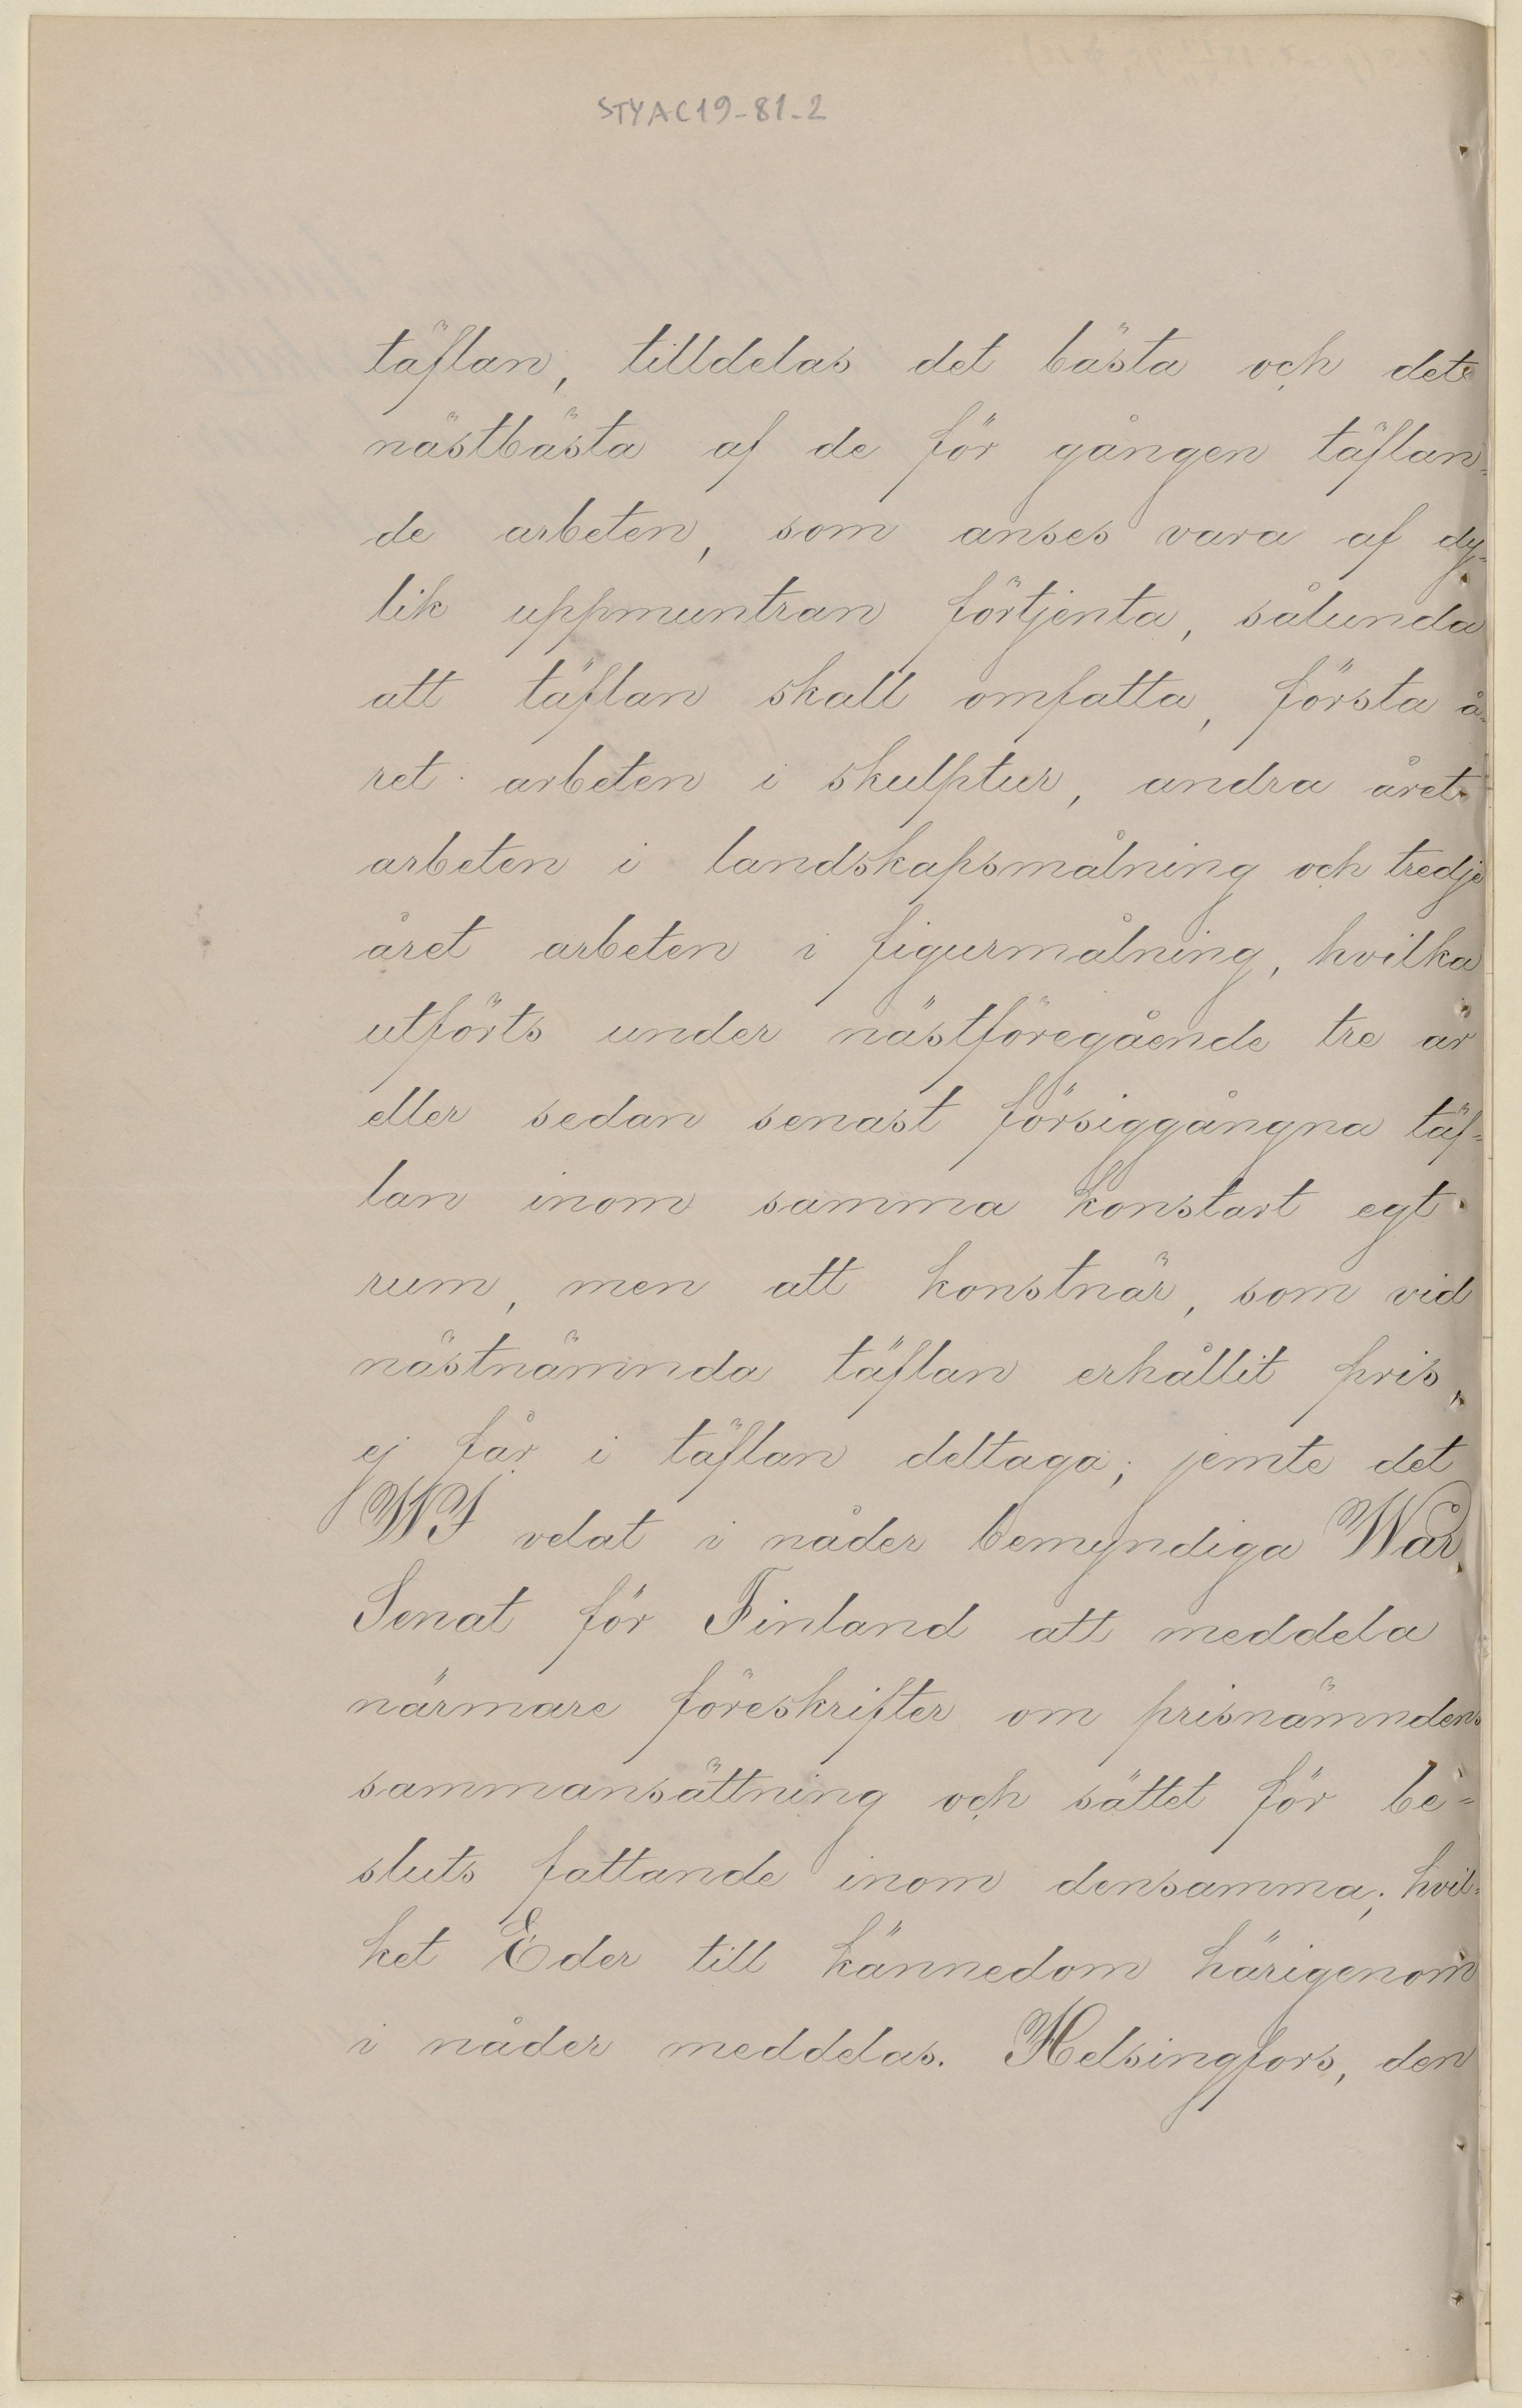 STYAC19-81-2
täflan, tilldelas det bästa och det
nästbästa af de för gången täflan-
de arbeten, som anses vara af dy-
lik uppmuntran förtjenta, sålunda
att täflan skall omfatta, första å-
ret arbeten i skulptur, andra året
arbeten i landskapsmålning och tredje
året arbeten i figurmålning, hvilka
utförts under nästföregående tre år
eller sedan senast försiggångna täf-
lan inom samma konstart egt
rum, men att konstnär, som vid
nästnämnda täflan erhållit pris,
ej får i täflan deltaga; jemte det
WI velat i nåder bemyndiga Wår
Senat för Finland att meddela
närmare föreskrifter om prisnämndens
sammansättning och sättet för be-
sluts fattande inom densamma; hvil-
ket Eder till kännedom härigenom
i nåder meddelas. Helsingfors, den